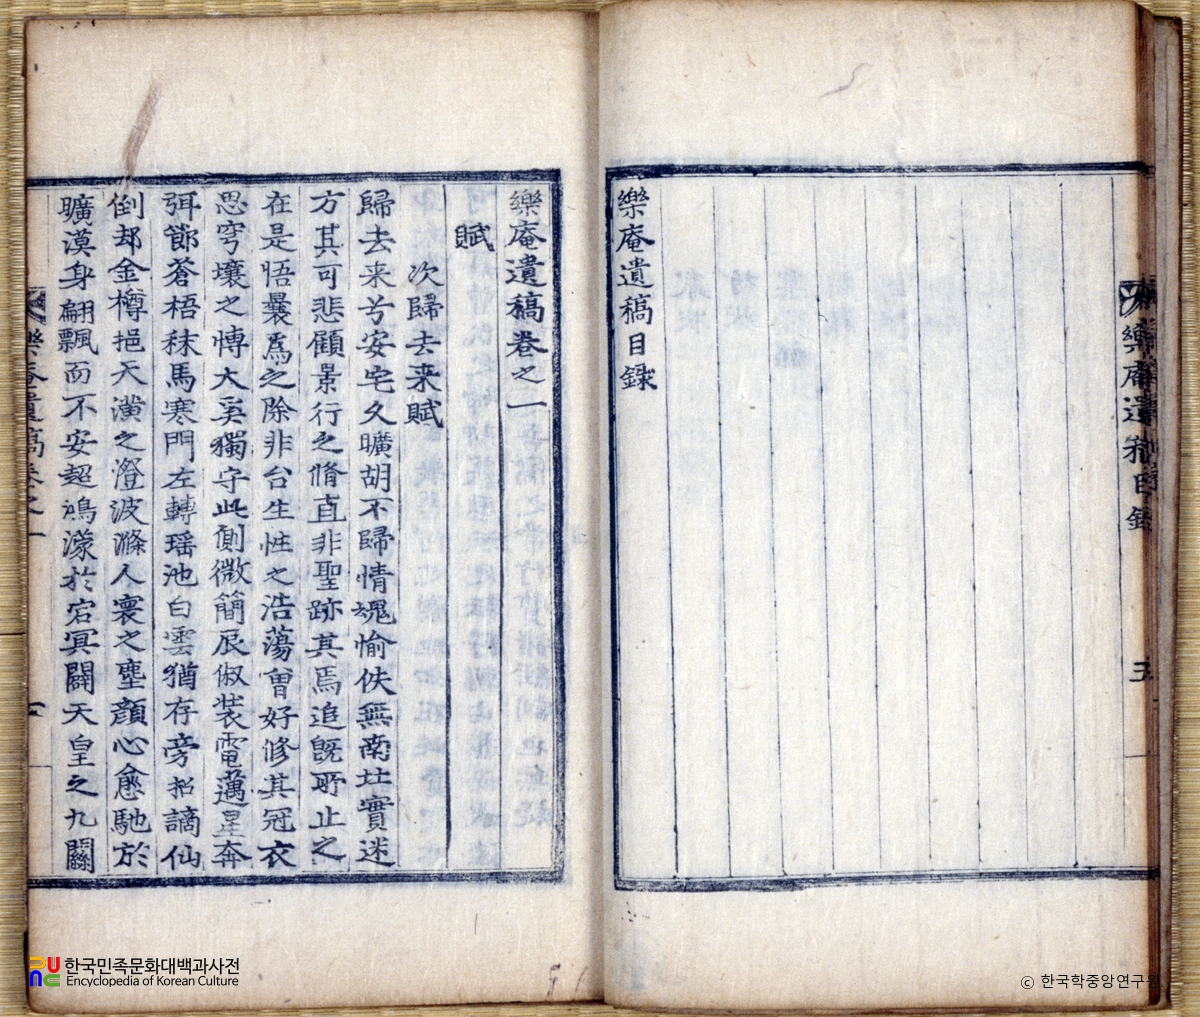 樂庵遺稿目錄
樂庵遺稿目錄
五
樂庵遺稿卷之一
賦
次歸去来賦
歸去来兮安宅久曠胡不歸情塊愉佚無南北實迷
方其可悲顧景行之脩直非聖跡其焉追旣所止之
在是悟曩爲之除非台生性之浩蕩曾好修其冠衣
思穹壤之博大奚獨守此側微簡辰俶装電邁星奔
弭節蒼梧秣馬寒門左轉瑶池白雲猶存旁招謫仙
倒却金樽挹天潢之澄波滌人寰之塵顔心愈馳於
曠漠身翩飄而不安超鴻濛於宕冥闢天皇之九關
樂庵遺稿卷之一
한국민족문화대백과사전
Encyclopedia of Korean Culture
ⓒ 한국학중앙연구원